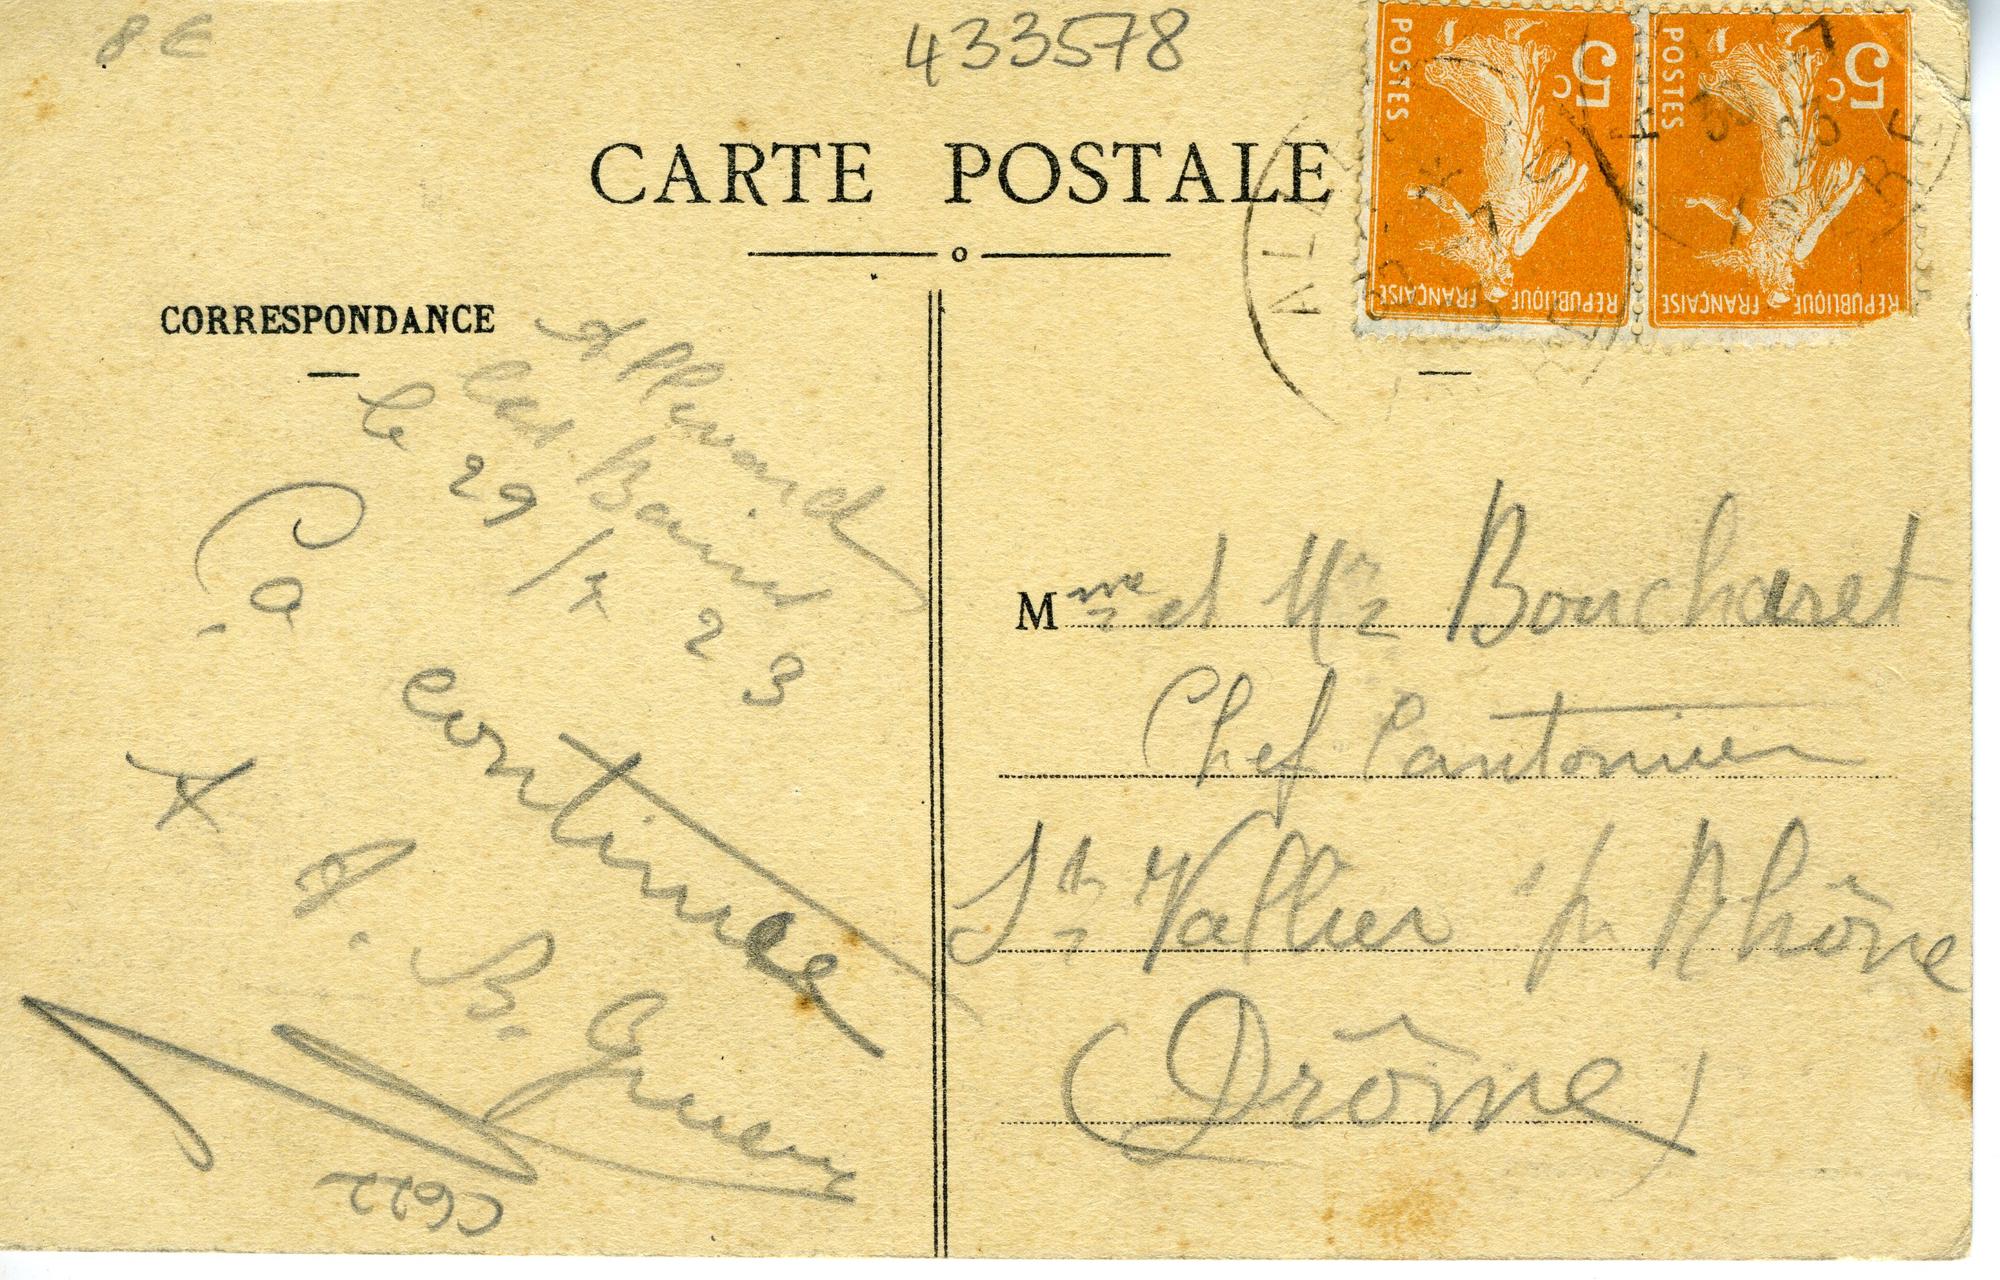 8 €
433578
CARTE POSTALE
5c
POSTES
REPUBLIQUE FRANÇAISE
5c
POSTES
REPUBLIQUE FRANÇAISE
CORRESPONDANCE
Allevard
les Bains
le 29/7 23
Ça
continue
A. B.
C622
Mme et Mr Boucharet
Chef Cantonnier
St Vallier s/ Rhône
(Drôme)